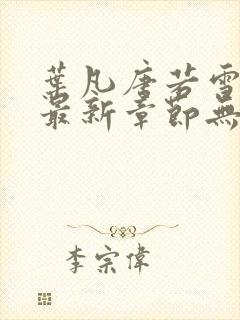 葉凡唐若雪
最新章節無
李宗偉